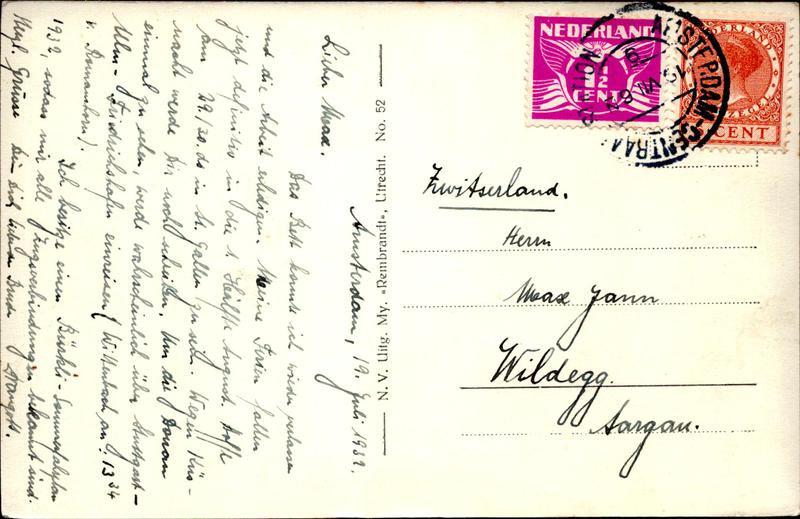 Amsterdam, 19. Juli 1932.
Lieber Max.
Das Bett konnte ich wieder verlassen
und die Arbeit erledigen. Meine Ferien fallen
jetzt definitiv in die 1. Hälfte August. Hoffe
am 29/30. ds in St. Gallen zu sein. Wegen Küs-
nacht werde Dir noch schreiben. Um die Donau
einmal zu sehen, werde wahrscheinlich über Stuttgart-
Ulm-Friedrichshafen einreisen (Wittenbach an: 13 34
v. Romanshorn).
Ich besitze einen Bürkli-Sommerfahrplan
1932, sodass mir alle Zugsverbindungen bekannt sind.
Herzl. Grüsse Dein Dich liebender Bruder
N. V. Uitg. My. "Rembrandt", Utrecht. No. 52
NEDERLAND
CENT
NEDERLAND
CENT
AMSTERDAM-CENTRAAL STATION
Zwitserland.
Herrn
Max Jann
Wildegg.
Aargau.